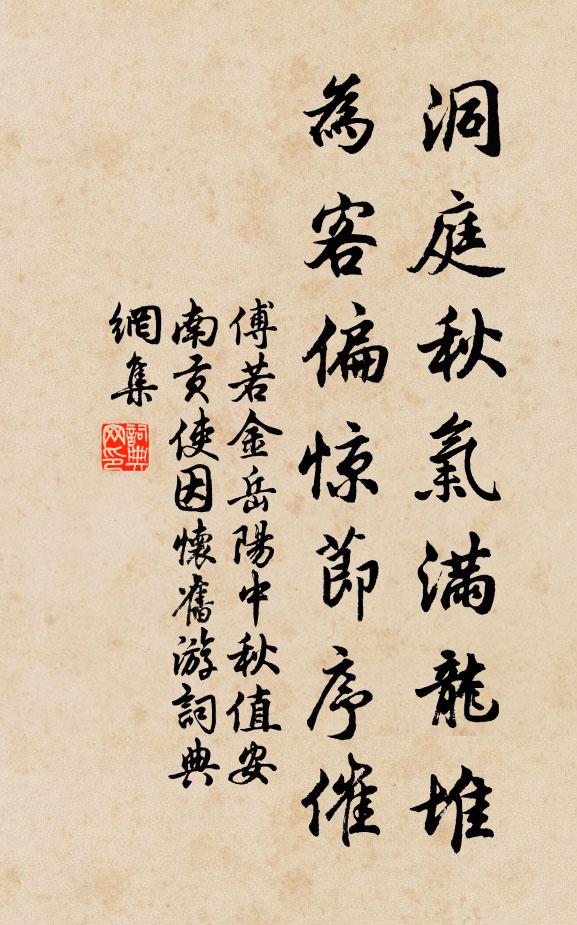 洞庭秋氣滿龍堆
為客偏惊節序催
傅若金岳陽中秋值安
南貢使因懷舊游詞典
網集
詞典
网印